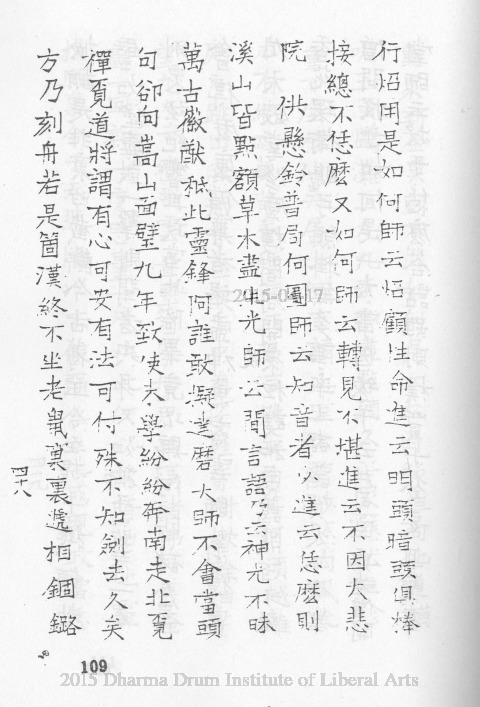 行炤用是如何師云炤顧性命進云明頭暗頭俱棒
接總不恁麼又如何師云轉見不堪進云不因大悲
院供懸鈴普局何圖師云知音者少進云恁麼則
溪山皆點額草木盡生光師云閒言語乃云神光不昧
萬古徽猷秪此靈鋒阿誰敢擬達磨大師不會當頭
句卻向嵩山面壁九年致使夫學紛紛奔南走北覓
禪覓道將謂有心可安有法可付殊不知劍去久矣
方乃刻舟若是箇漢終不坐老鼠窠裏遞相錮鏴
四十八
109
2015-04-17
2015 Dharma Drum Institute of Liberal Arts